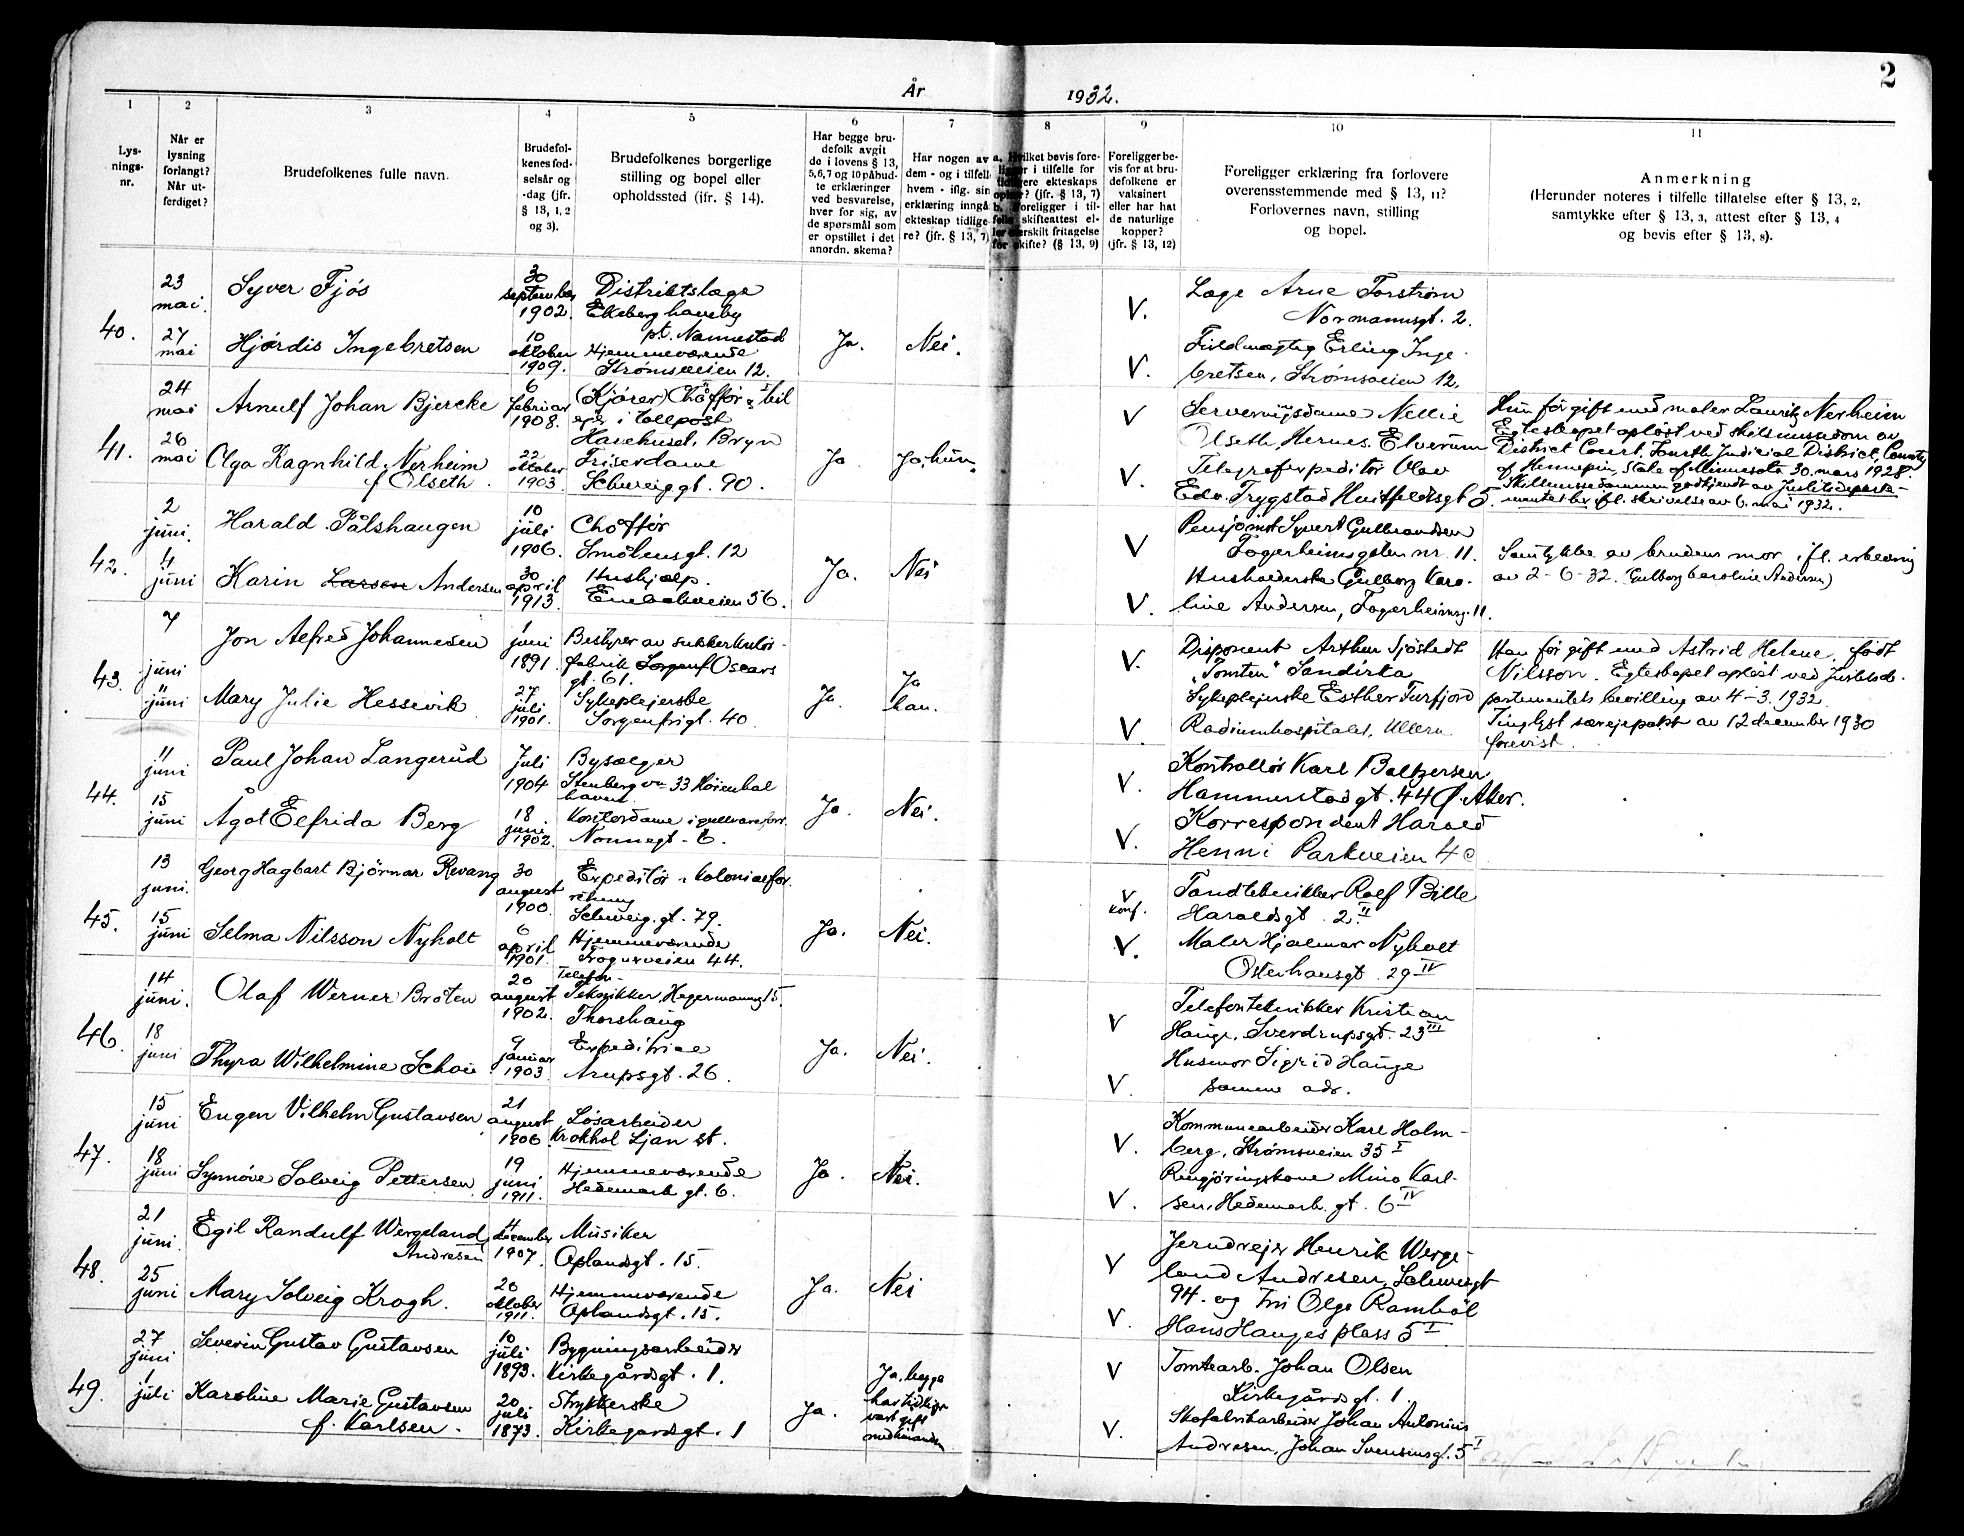 2
År 1932.
1
2
3
4
5
6
7
8
9
10
11
Lys-
nings-
nr.
Når er
lysning
forlangt?
Når ut-
ferdiget?
Brudefolkenes fulle navn.
Brudefol-
kenes fød-
selsår og
-dag (jfr.
§ 13, 1, 2
og 3).
Brudefolkenes borgerlige
stilling og bopel eller
opholdssted (jfr. § 14).
Har begge bru-
defolk avgit
de i lovens § 13,
5,6,7 og 10 påbud-
te erklæringer
ved besvarelse,
hver for sig, av
de spørsmål som
er opstillet i det
anordn. skema?
Har nogen av
dem - og i tilfelle
hvem - iflg. sin
erklæring inngå
ekteskap tidlige-
re? (jfr. § 13, 7)
a. Hvilket bevis fore-
ligger i tilfelle for
tidligere ekteskaps
ophør? (jfr. § 13, 7)
b. Foreligger i til-
felle skifteattest el-
ler særskilt fritagelse
for skifte? (§ 13, 9)
Foreligger be-
vis for at bru-
defolkene er
vaksinert
eller har hat
de naturlige
kopper?
(jfr. § 13, 12)
Foreligger erklæring fra forlovere
overensstemmende med § 13, 11?
Forlovernes navn, stilling
og bopel.
Anmerkning
(Herunder noteres i tilfelle tillatelse efter § 13, 2,
samtykke efter § 13, 3, attest efter § 13, 4
og bevis efter § 13, 8).
40.
23
mai.
27
mai
Syver Fjøs
Hjørdis Ingebretsen
30
september
1902.
10
oktober
1909.
Distriktslæge
Ekeberg haveby
pt. Nannestad
Hjemmeværende
Strømsveien 12.
Ja.
Nei.
V.
V.
Læge Arne Torstrøm
Normannsgt. 2.
Fuldmægtig Erling Inge-
bretsen, Strømsveien 12.
41.
24
mai
26
mai
Arnulf Johan Bjercke
Olga Ragnhild Nerheim
f. Olseth.
6
februar
1908.
22
oktober
1903.
(Kjører) Chåffør, bil
eier i tollpost
Havehuset, Bryn
Friserdame
Schweiggt. 90.
Ja
Ja, hun.
V
V.
Serveringsdame Nellie
Olseth Hernes. Elverum
Telegrafexpeditør Olav
Edv. Trygstad Huitfeldtsgt 5.
Hun før gift med maler Lauritz Nerheim
Egteskapet opløst ved skilsmissedom av
District Court, Fourth Judicial District, County
of Hennepin, State of Minnesota 30. mars 1928.
Skilsmissedommen godkjendt av Justitsdeparte-
mentet ifl. skrivelse av 6. mai 1932.
42.
2
juni.
4
juni
Harald Pålshaugen
Karin Larsen Andersen
10
juli
1906.
30
april
1913.
Chåffør
Smålensgt. 12
Hushjelp.
Enebakveien 56.
Ja.
Nei
V
V.
Pensjonist Syvert Gulbrandsen
Fagerheimsgaten nr. 11.
Husholderske Gulborg Karo-
line Andersen, Fagerheimsg. 11.
Samtykke av brudens mor ifl. erklæring
av 2-6-32. (Gulborg Caroline Andersen)
43.
7
juni
11
juni
Jon Alfred Johannesen
Mary Julie Hessevik
1
juni
1891.
27
juli
1901.
Bestyrer av sukkerkulør-
fabrik Sorgenf Oscars
gt. 61.
Sykepleierske
Sorgenfrigt. 40.
Ja.
Ja
han.
V.
V.
Disponent Arthur Sjöstedt
"Tomten" Sandvika
Sykepleierske Esther Furfjord
Radiumhospitalet, Ullern
Han før gift med Astrid Helene, født
Nilsson. Egteskapet opløst ved Justitsde-
partementets bevilling av 4-3. 1932.
Tinglyst særeiepakt av 12 december 1930
forevist.
44.
11
juni
15
juni
Paul Johan Langerud
Ågot Elfrida Berg
Juli
1904
18
juni
1902.
Bysælger
Stenberg vn 33 Høienhal
haven.
Kontordame i gullvareforr.
Nonnegt. 6.
Ja.
Nei.
V.
V.
Kontrollør Karl Baltzersen
Hammerstadgt. 44 Ø. Aker.
Korrespondent Harald
Henni Parkveien 4 c
45.
13
juni.
15
juni
Georg Hagbart Bjørnar Revang
Selma Nilsson Nyholt
30
august
1900.
6
april
1901.
Expeditør i kolonialfor-
retning
Schweig. gt. 79.
Hjemmeværende
Frognerveien 44.
Ja.
Nei.
V
konf.
V.
Tandtekniker Rolf Bille
Haraldsgt. 2 II
Maler Hjalmar Nyholt
Osterhausgt. 29 IV
46.
14
juni.
18
juni
Olaf Werner Bråten
Thyra Wilhelmine Schøie
20
august
1902.
9
januar
1903.
Telefon-
Teknikker, Hegermannsg 15.
Thorshaug
Expeditrise
Arupsgt. 26.
Ja.
Nei.
V
V.
Telefontekniker Kristian
Hauge, Sverdrupsgt. 23 III
Husmor Sigrid Hauge
samme adr.
47.
15
juni
18
juni
Eugen Vilhelm Gustavsen
Synnøve Solveig Pettersen
21
august
1906
19
juni
1911.
Løsarbeider
Krokhol Ljan st.
Hjemmeværende
Hedemark gt. 6.
Ja.
Nei.
V.
V.
Kommunearbeider Karl Holm-
berg, Strømsveien 35 I
Rengjøringskone Mina Karl-
sen, Hedemark. gt. 6 IV
48.
21
juni.
25
juni
Egil Randulf Wergeland
Andresen
Mary Solveig Krogh.
4
december
1907.
20
oktober
1911.
Musiker
Oplandsgt. 15.
Hjemmeværende
Oplandsgt. 15.
Ja.
Nei
V
V.
Jerndreier Henrik Werge-
land Andresen, Schweigt
94. og Fru Olga Ramböl
Hans Hauges plass 5 I
49.
27
juni
1
juli
Severin Gustav Gustavsen
Karoline Marie Gustavsen
f. Karlsen.
10
juli
1893.
20
juli
1873.
Bygningsarbeider
Kirkegårdsgt. 1.
Strykerske
Kirkegårdsgt. 1
Ja.
Ja, begge
har tidligere
vært gift
med hinanden
V
V.
Tomtearb. Johan Olsen
Kirkegårdsgt. 1.
Skofabrikarbeider Johan Antonius
Andresen, Johan Svensensgt. 5 I